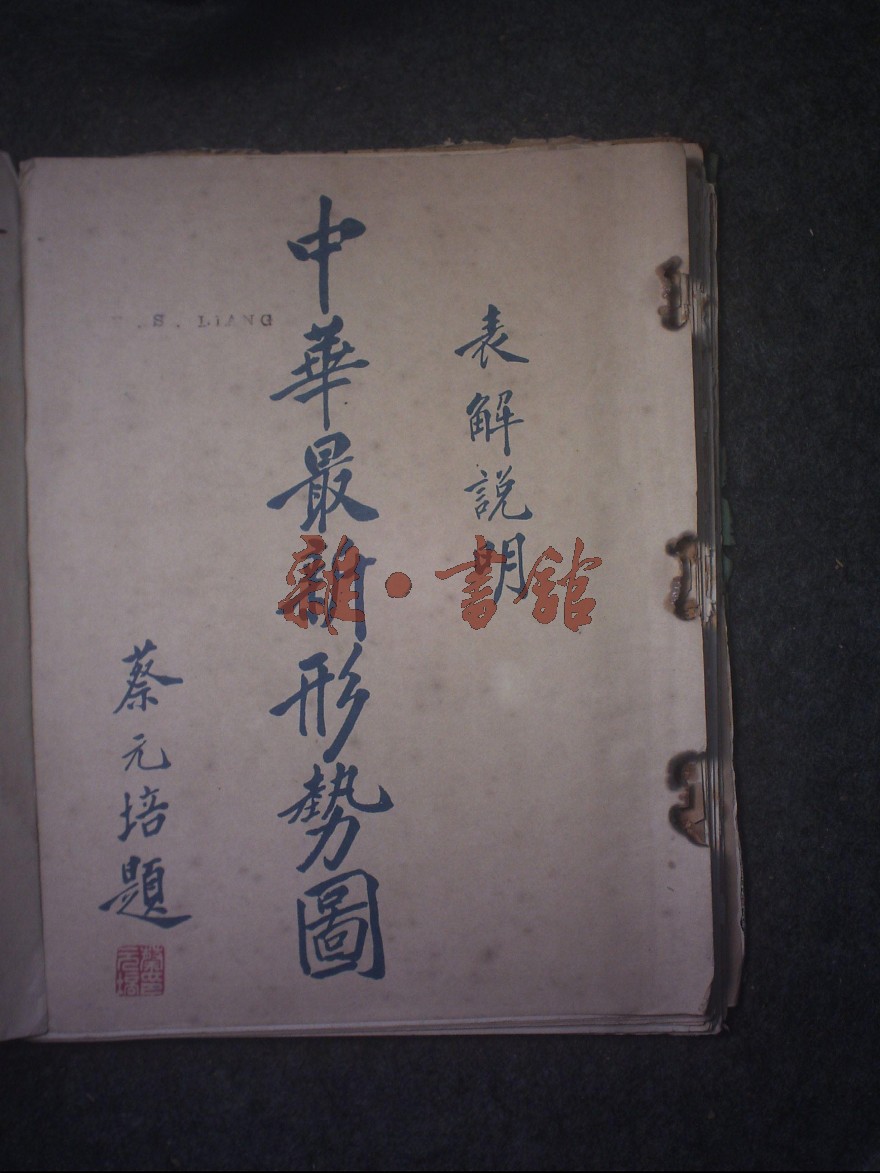 表解說明
中華最新形勢圖
S. LIANG
蔡元培題
蔡元培
雜·書館